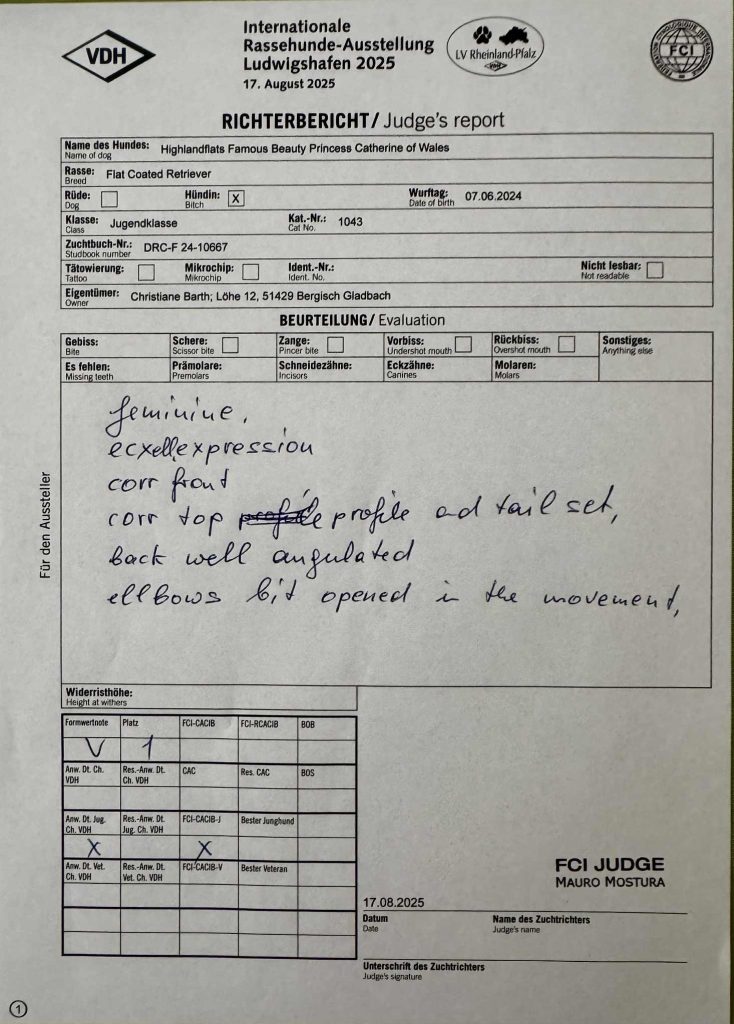 VDH
Internationale
Rassehunde-Ausstellung
Ludwigshafen 2025
17. August 2025
LV Rheinland-Pfalz
VDH
FCI
RICHTERBERICHT/ Judge's report
Name des Hundes: Highlandflats Famous Beauty Princess Catherine of Wales
Name of dog
Rasse: Flat Coated Retriever
Breed
Rüde: Hündin: X Wurftag: 07.06.2024
Dog Bitch Date of birth
Klasse: Jugendklasse Kat.-Nr.: 1043
Class Cat No.
Zuchtbuch-Nr.: DRC-F 24-10667
Studbook number
Tätowierung: Mikrochip: Ident.-Nr.: Nicht lesbar:
Tattoo Mikrochip Ident. No. Not readable
Eigentümer: Christiane Barth; Löhe 12, 51429 Bergisch Gladbach
Owner
BEURTEILUNG/ Evaluation
Gebiss: Schere: Zange: Vorbiss: Rückbiss: Sonstiges:
Bite Scissor bite Pincer bite Undershot mouth Overshot mouth Anything else
Es fehlen: Prämolare: Schneidezähne: Eckzähne: Molaren:
Missing teeth Premolars Incisors Canines Molars
Für den Aussteller
feminine,
ecxell.expression
corr front
corr top profile ad tail set,
back well angulated
ellbows bit opened in the movement,
Widerristhöhe:
Height at withers
Formwertnote Platz FCI-CACIB FCI-RCACIB BOB
V 1
Anw. Dt. Ch. Res.-Anw. Dt. CAC Res. CAC BOS
VDH Ch. VDH
Anw. Dt. Jug. Res.-Anw. Dt. FCI-CACIB-J Bester Junghund
Ch. VDH Jug. Ch. VDH
X X
Anw. Dt. Vet. Res.-Anw. Dt. FCI-CACIB-V Bester Veteran
Ch. VDH Vet. Ch. VDH
FCI JUDGE
MAURO MOSTURA
17.08.2025
Datum Name des Zuchtrichters
Date Judge's name
Unterschrift des Zuchtrichters
Judge's signature
1